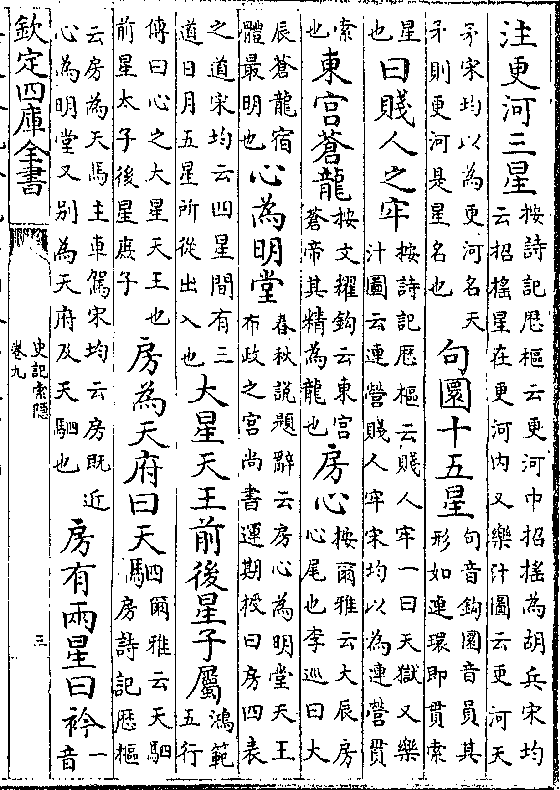 注更河三星按詩記厯樞云更河中招搖為胡兵宋均云招搖星在更河内又樂汁圖云更河天
矛宋均以為更河名天矛則更河是星名也句圜十五星句音鈎圜音員其形如連環即貫索
星也曰賤人之牢按詩記厯樞云賤人牢一曰天獄又樂汁圖云連營賤人牢宋均以為連營貫
索也東宫蒼龍按文耀鈎云東宫蒼帝其精為龍也房心按爾雅云大辰房心尾也李巡曰大
辰蒼龍宿體最明也心為明堂春秋說題辭云房心為明堂天王布政之宫尚書運期授曰房四表
之道宋均云四星間有三道日月五星所從出入也大星天王前後星子屬鴻範五行
傳曰心之大星天王也前星太子後星庶子房為天府曰天駟爾雅云天駟房詩記厯樞
云房為天馬主車駕宋均云房既近心為明堂又别為天府及天駟也房有兩星曰衿一音
欽定四庫全書
史記索隱
卷九
三